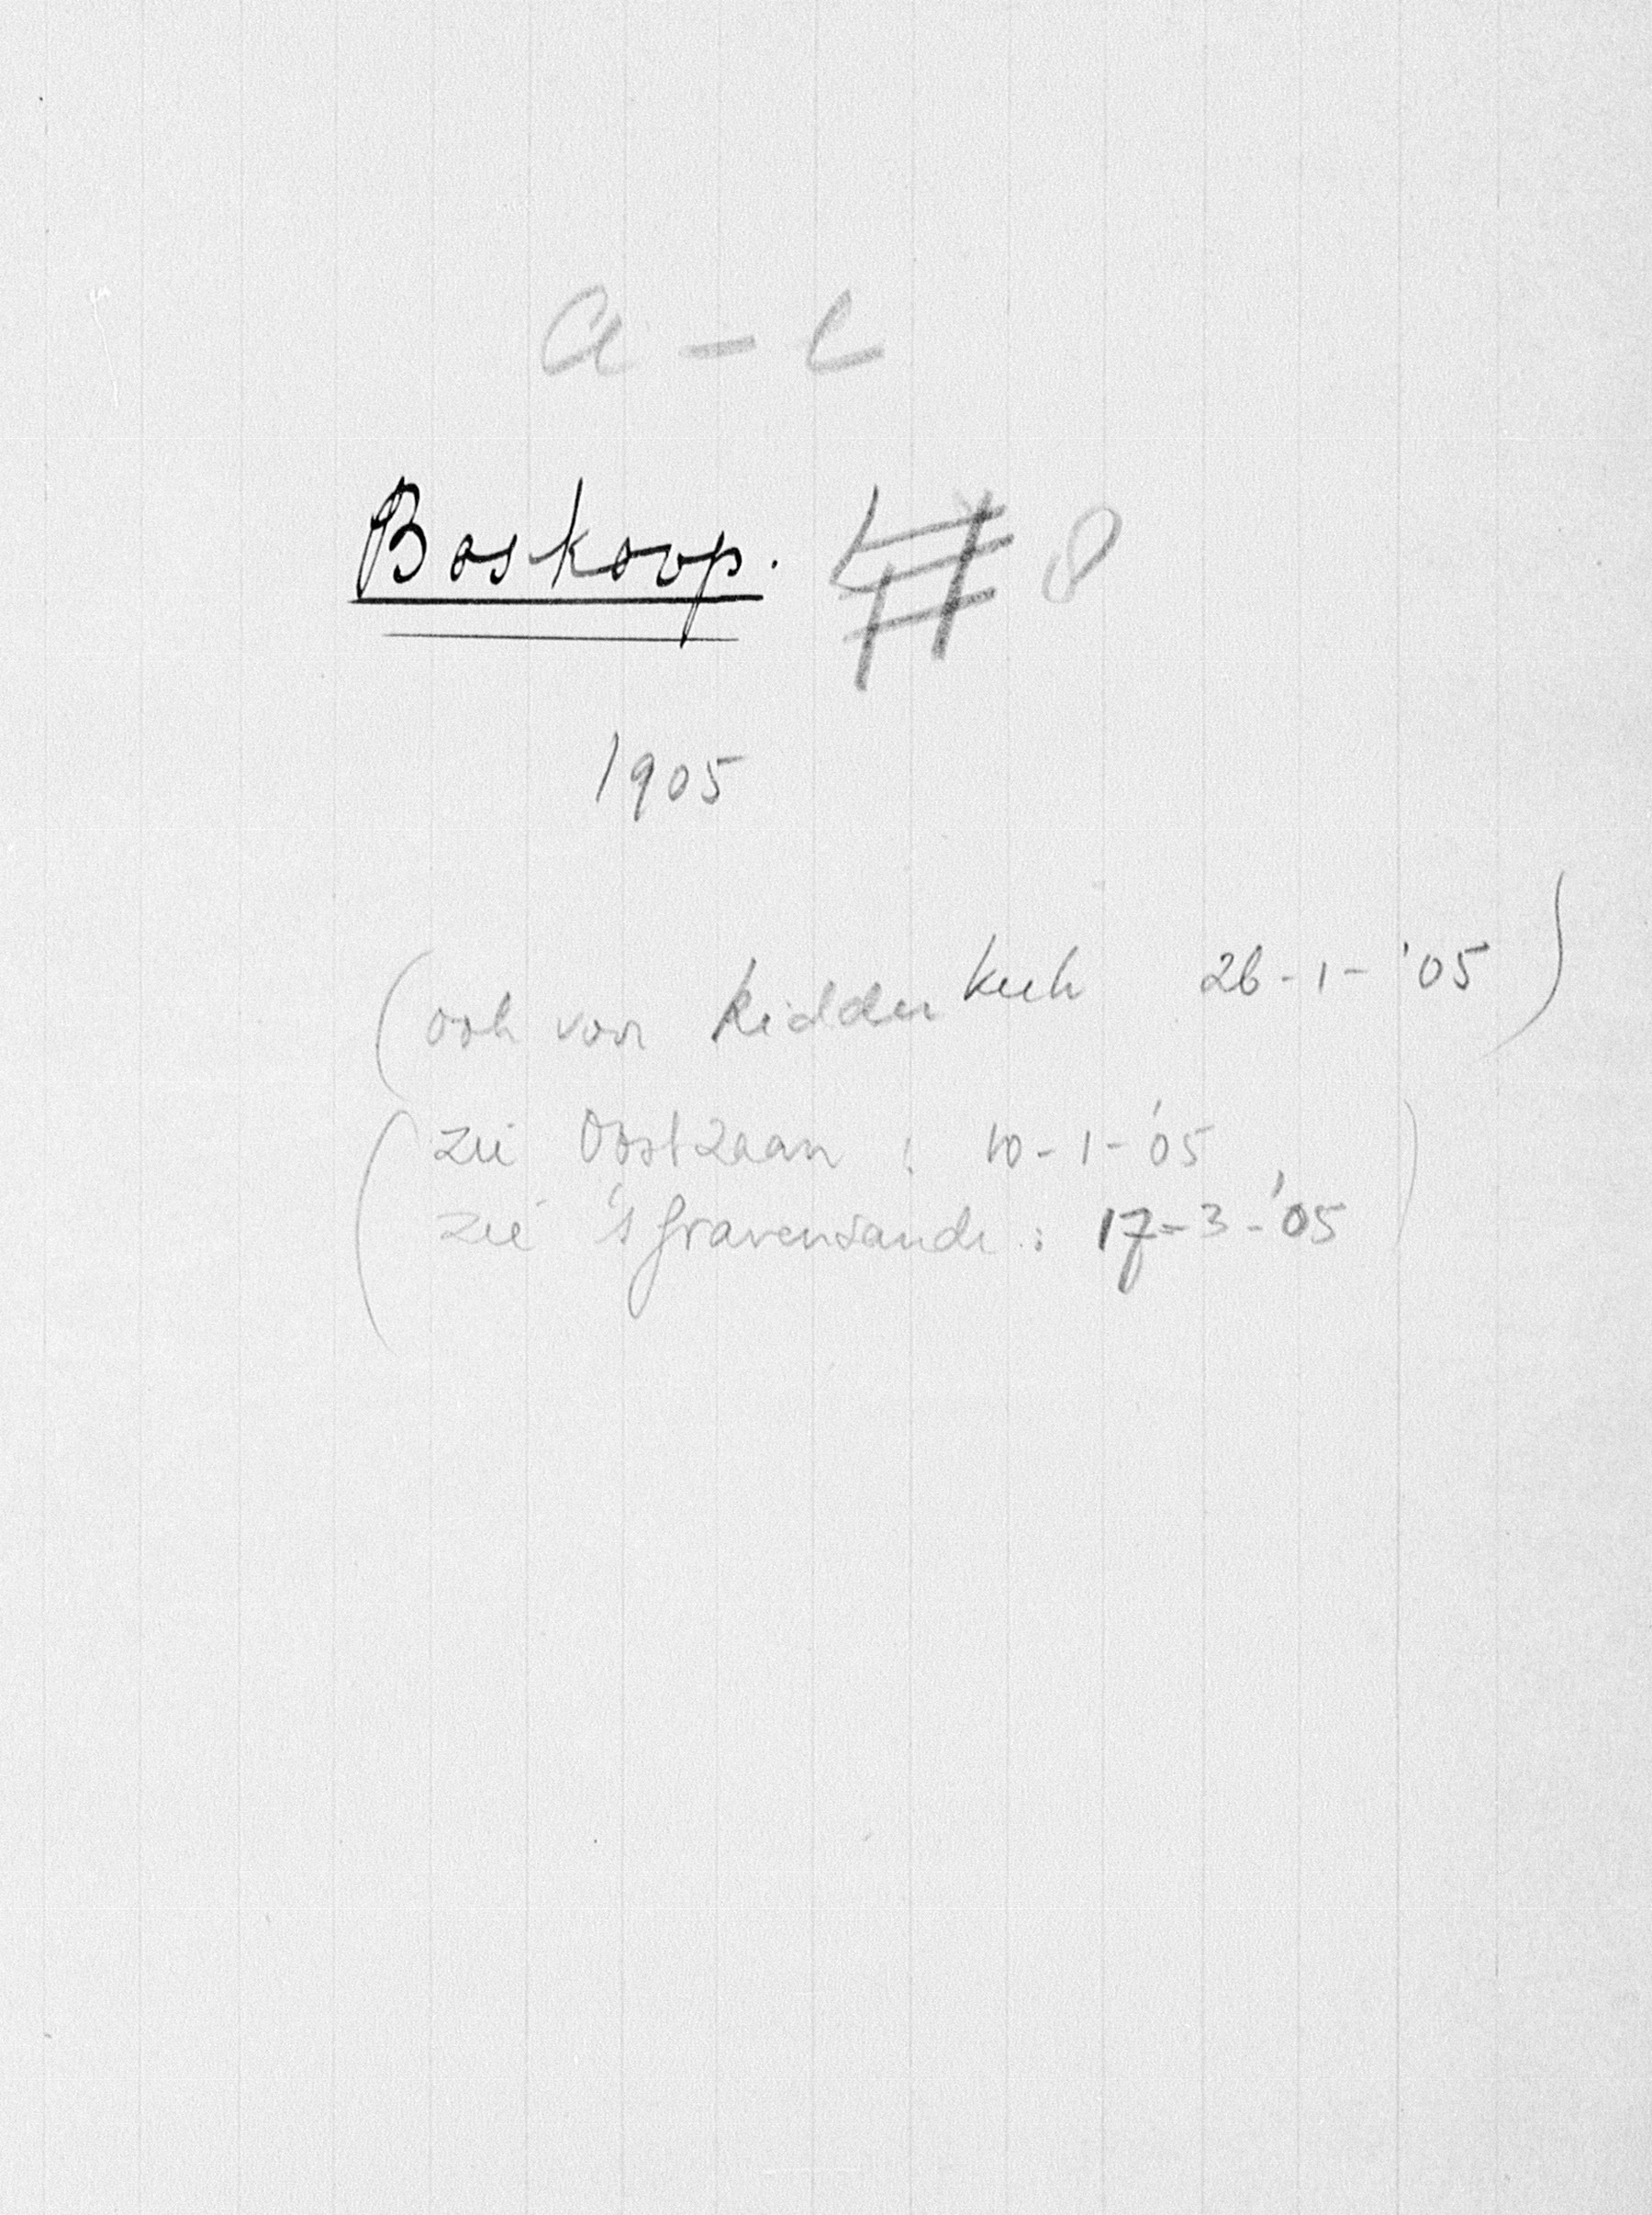 a - c
Boskoop. 8
1905
(ook van Ridderkerk 26-1-'05)
(zie Oostzaan : 10-1-'05
zie 's Gravensande : 17-3-'05)